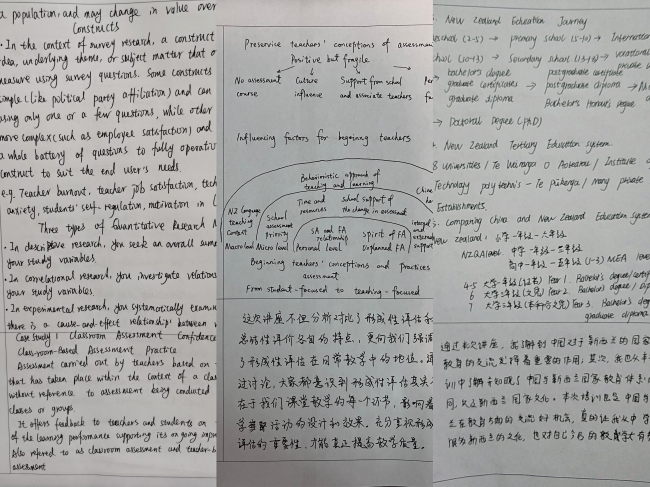 a population, and may change in value over
Constructs
· In the context of survey research, a construct
idea, underlying theme, or subject matter that o
measure using survey questions. Some constructs
simple (like political party affiliation) and can
using only one or a few questions, while other
more complex (such as employee satisfaction) and
a whole battery of questions to fully operati
construct to suit the end user's needs.
e.g. Teacher burnout, teacher job satisfaction, tec
anxiety, students' self-regulation, motivation in L
Three types of Quantitative Research
· In descriptive research, you seek an overall summ
your study variables.
· In correlational research, you investigate relation
your study variables.
· In experimental research, you systematically examin
there is a cause-and-effect relationship between
Case Study 1 Classroom Assessment Confidence
Classroom-Based Assessment Practice
Assessment carried out by teachers based on
that has taken place within the context of a clas
without reference to assessment being conducted
classes or groups
It offers feedback to teachers and students on
of the learning performance supporting its on going
Also referred to as classroom assessment and teacher-b
assessment
Preservice teachers' conceptions of assessmen
Positive but fragile
No assessment Culture Support from school
course influence and associate teachers
Influencing factors for beginning teachers
Behavioristic approach of
teaching and learning
NZ Language
teaching
Context
Macro level
School
assessment
Priority
Micro level
Time and
resources
School support of
no change in assessment
SA and FA
relationship
Personal level
Spirit of FA
Unplanned FA
China
internal and
external
support
Beginning teachers' conceptions and practices
assessment
From student-focused to teaching-focused
这次讲座不但分析对比了形成性评估和
各的特点，更加
了形成性评估在日常教学中的地位。通
过讨论，大家都意识到形成性评估
在于我们课堂教学的每一个环节，影响着
学 活动的设计和效果，充分重视形成
评估的重要性，才能真正提高教学质量。
New Zealand Education Journey
eschool (2-5) → primary school (5-10) → Intermed
school (10-13) → Secondary school (13-18) → vocationa
private
bachelor's degree postgraduate certificate
graduate certificates → postgraduate diploma →
graduate diploma Bachelor's Honours degree
→ Doctoral Degree (PhD)
New Zealand Tertiary Education system
8 universities / Te Wananga O Aotearoa / Institute
Technology polytechnics - Te pukenga / many private
Establishments.
3. Comparing China and New Zealand Education system
New Zealand: 小学 一年级 - 六年级
NZQA level: 中学 一年级 - 三年级
高中 一年级 - 三年级 (1-3) NCEA leve
4-5 大学一年级 Year 1. Bachelor's degree/certif
6 大学二年级 Year 2. Bachelor's degree / dip
7 大学三年级 Year 3. Bachelor's deg
graduate diploma
通过本次讲座，我了解到中国对于新西兰的国家
教育的交流发挥着重要的作用；其次，我也从本
训中了解和知晓了中国与新西兰国家教育体系
同，以及新西兰国家文化。本次培训也是中国与
兰在教育方面的交流好机会，真的让我从中学
很多新西兰的文化，也对自己